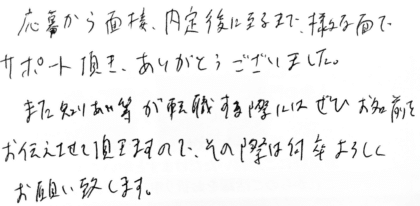 応募から面接、内定後に至るまで、様々な面で
サポート頂き、ありがとうございました。
また知りあい等が転職する際にはぜひお名前を
お伝えさせて頂きますので、その際は何卒よろしく
お願い致します。